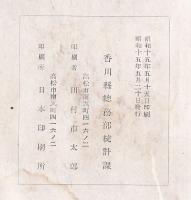 昭和十五年五月十五日印刷
昭和十五年五月二十日発行
香川縣總務部統計課
高松市南瓦町四一六ノ二
印刷者 田村市太郎
高松市南瓦町四一六ノ二
印刷所 日本印刷所